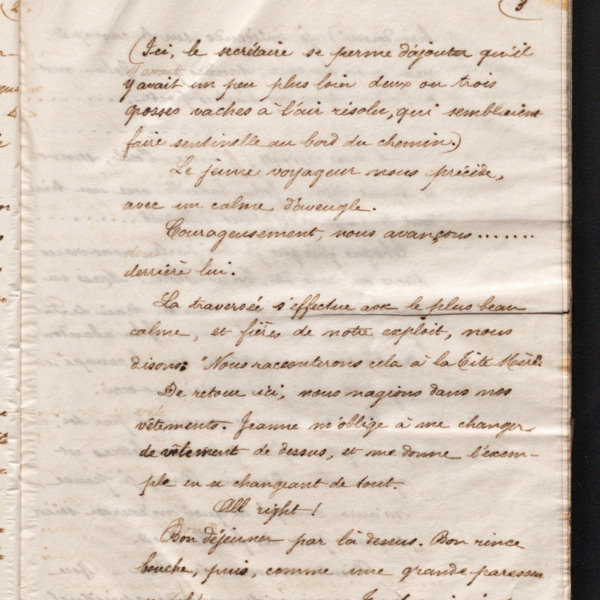 3
(Ici, le secrétaire se perme d'ajouter qu'il
y avait un peu plus loin deux ou trois
grosses vaches à l'air résolu, qui semblaient
faire sentinelle au bord du chemin.)
Le jeune voyageur nous précède,
avec un calme d'aveugle.
Courageusement, nous avançons.......
derrière lui.
La traversée s'effectue avec le plus beau
calme, et fières de notre exploit, nous
disons: "Nous raconterons cela à la Tite Mère".
De retour ici, nous nagions dans nos
vêtements. Jeanne m'oblige à me changer
de vêtement de dessus, et me donne l'exem-
ple en se changeant de tout.
All right!
Bon déjeuner par là dessus. Bon rince
bouche, puis, comme une grande paresseu